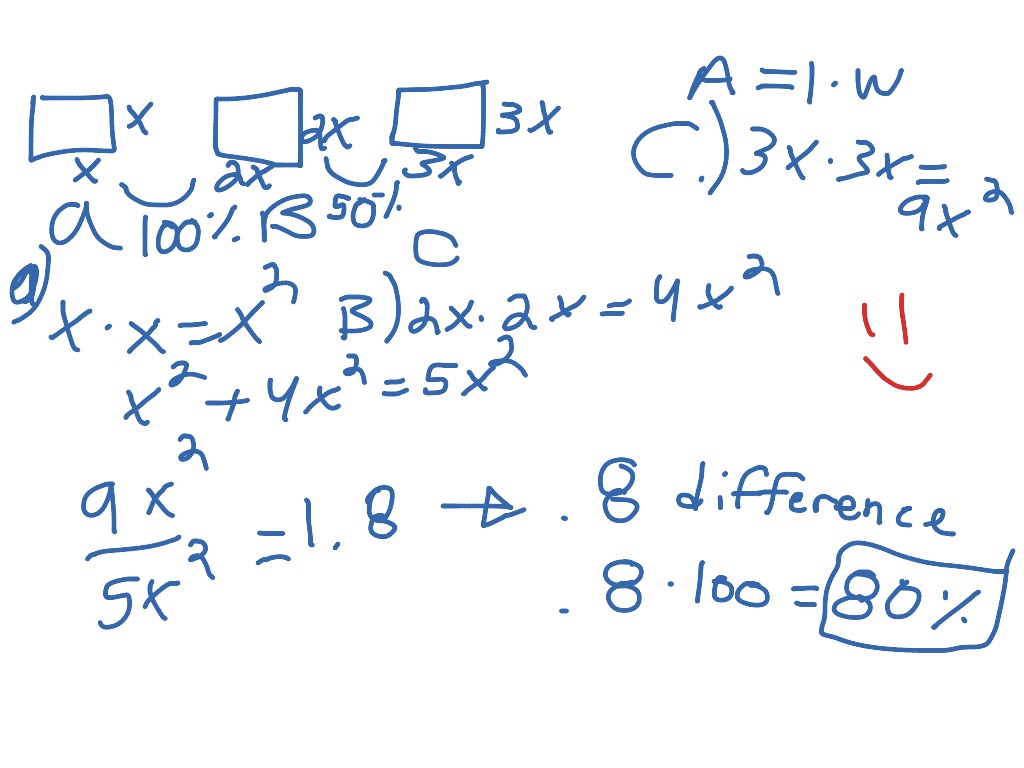 A = l · w
x 2x 3x
x 2x 3x
a 100% B 50% C
C.) 3x · 3x = 9x²
a) x · x = x² B) 2x · 2x = 4x²
x² + 4x² = 5x²
9x² / 5x² = 1.8 → .8 difference
.8 · 100 = 80%